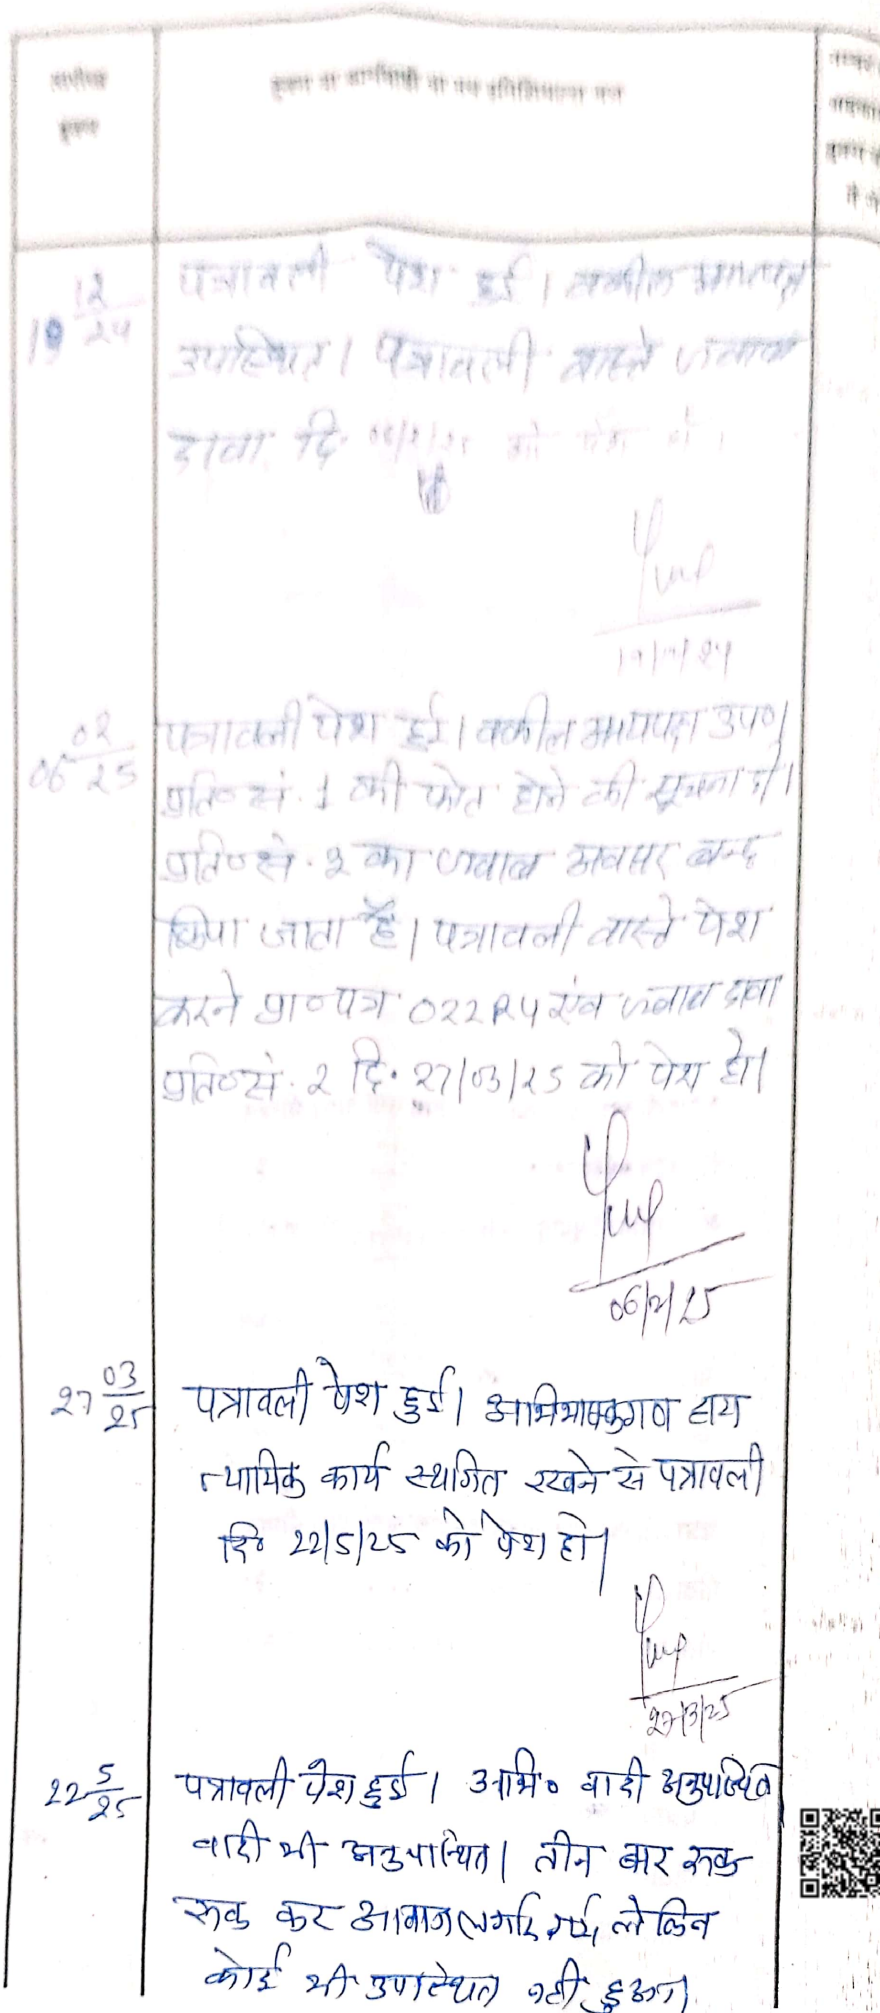 तारीख
हुक्म
हुक्म या कार्यवाही मय इनिशियल्स जज
19 12/24
पत्रावली पेश हुई। वकील उभयपक्ष
उपस्थित। पत्रावली वास्ते जवाब
दावा दि. 06/2/25 को पेश हो।
19/12/24
06 02/25
पत्रावली पेश हुई। वकील उभयपक्ष उप०।
प्रति० सं. 1 की फोत होने की सूचना दी।
प्रति० सं. 3 का जवाब अवसर बन्द
किया जाता है। पत्रावली वास्ते पेश
करने प्रा० पत्र O22R4 एंव जवाब दावा
प्रति० सं. 2 दि. 27/03/25 को पेश हो।
06/2/25
27 03/25
पत्रावली पेश हुई। अभिभाषकगण द्वारा
न्यायिक कार्य स्थगित रखने से पत्रावली
दि० 22/5/25 को पेश हो।
27/3/25
22 5/25
पत्रावली पेश हुई। अभि० वादी अनुपस्थित
वादी भी अनुपस्थित। तीन बार रूक
रूक कर आवाज लगाई गई, लेकिन
कोई भी उपस्थित नही हुआ।